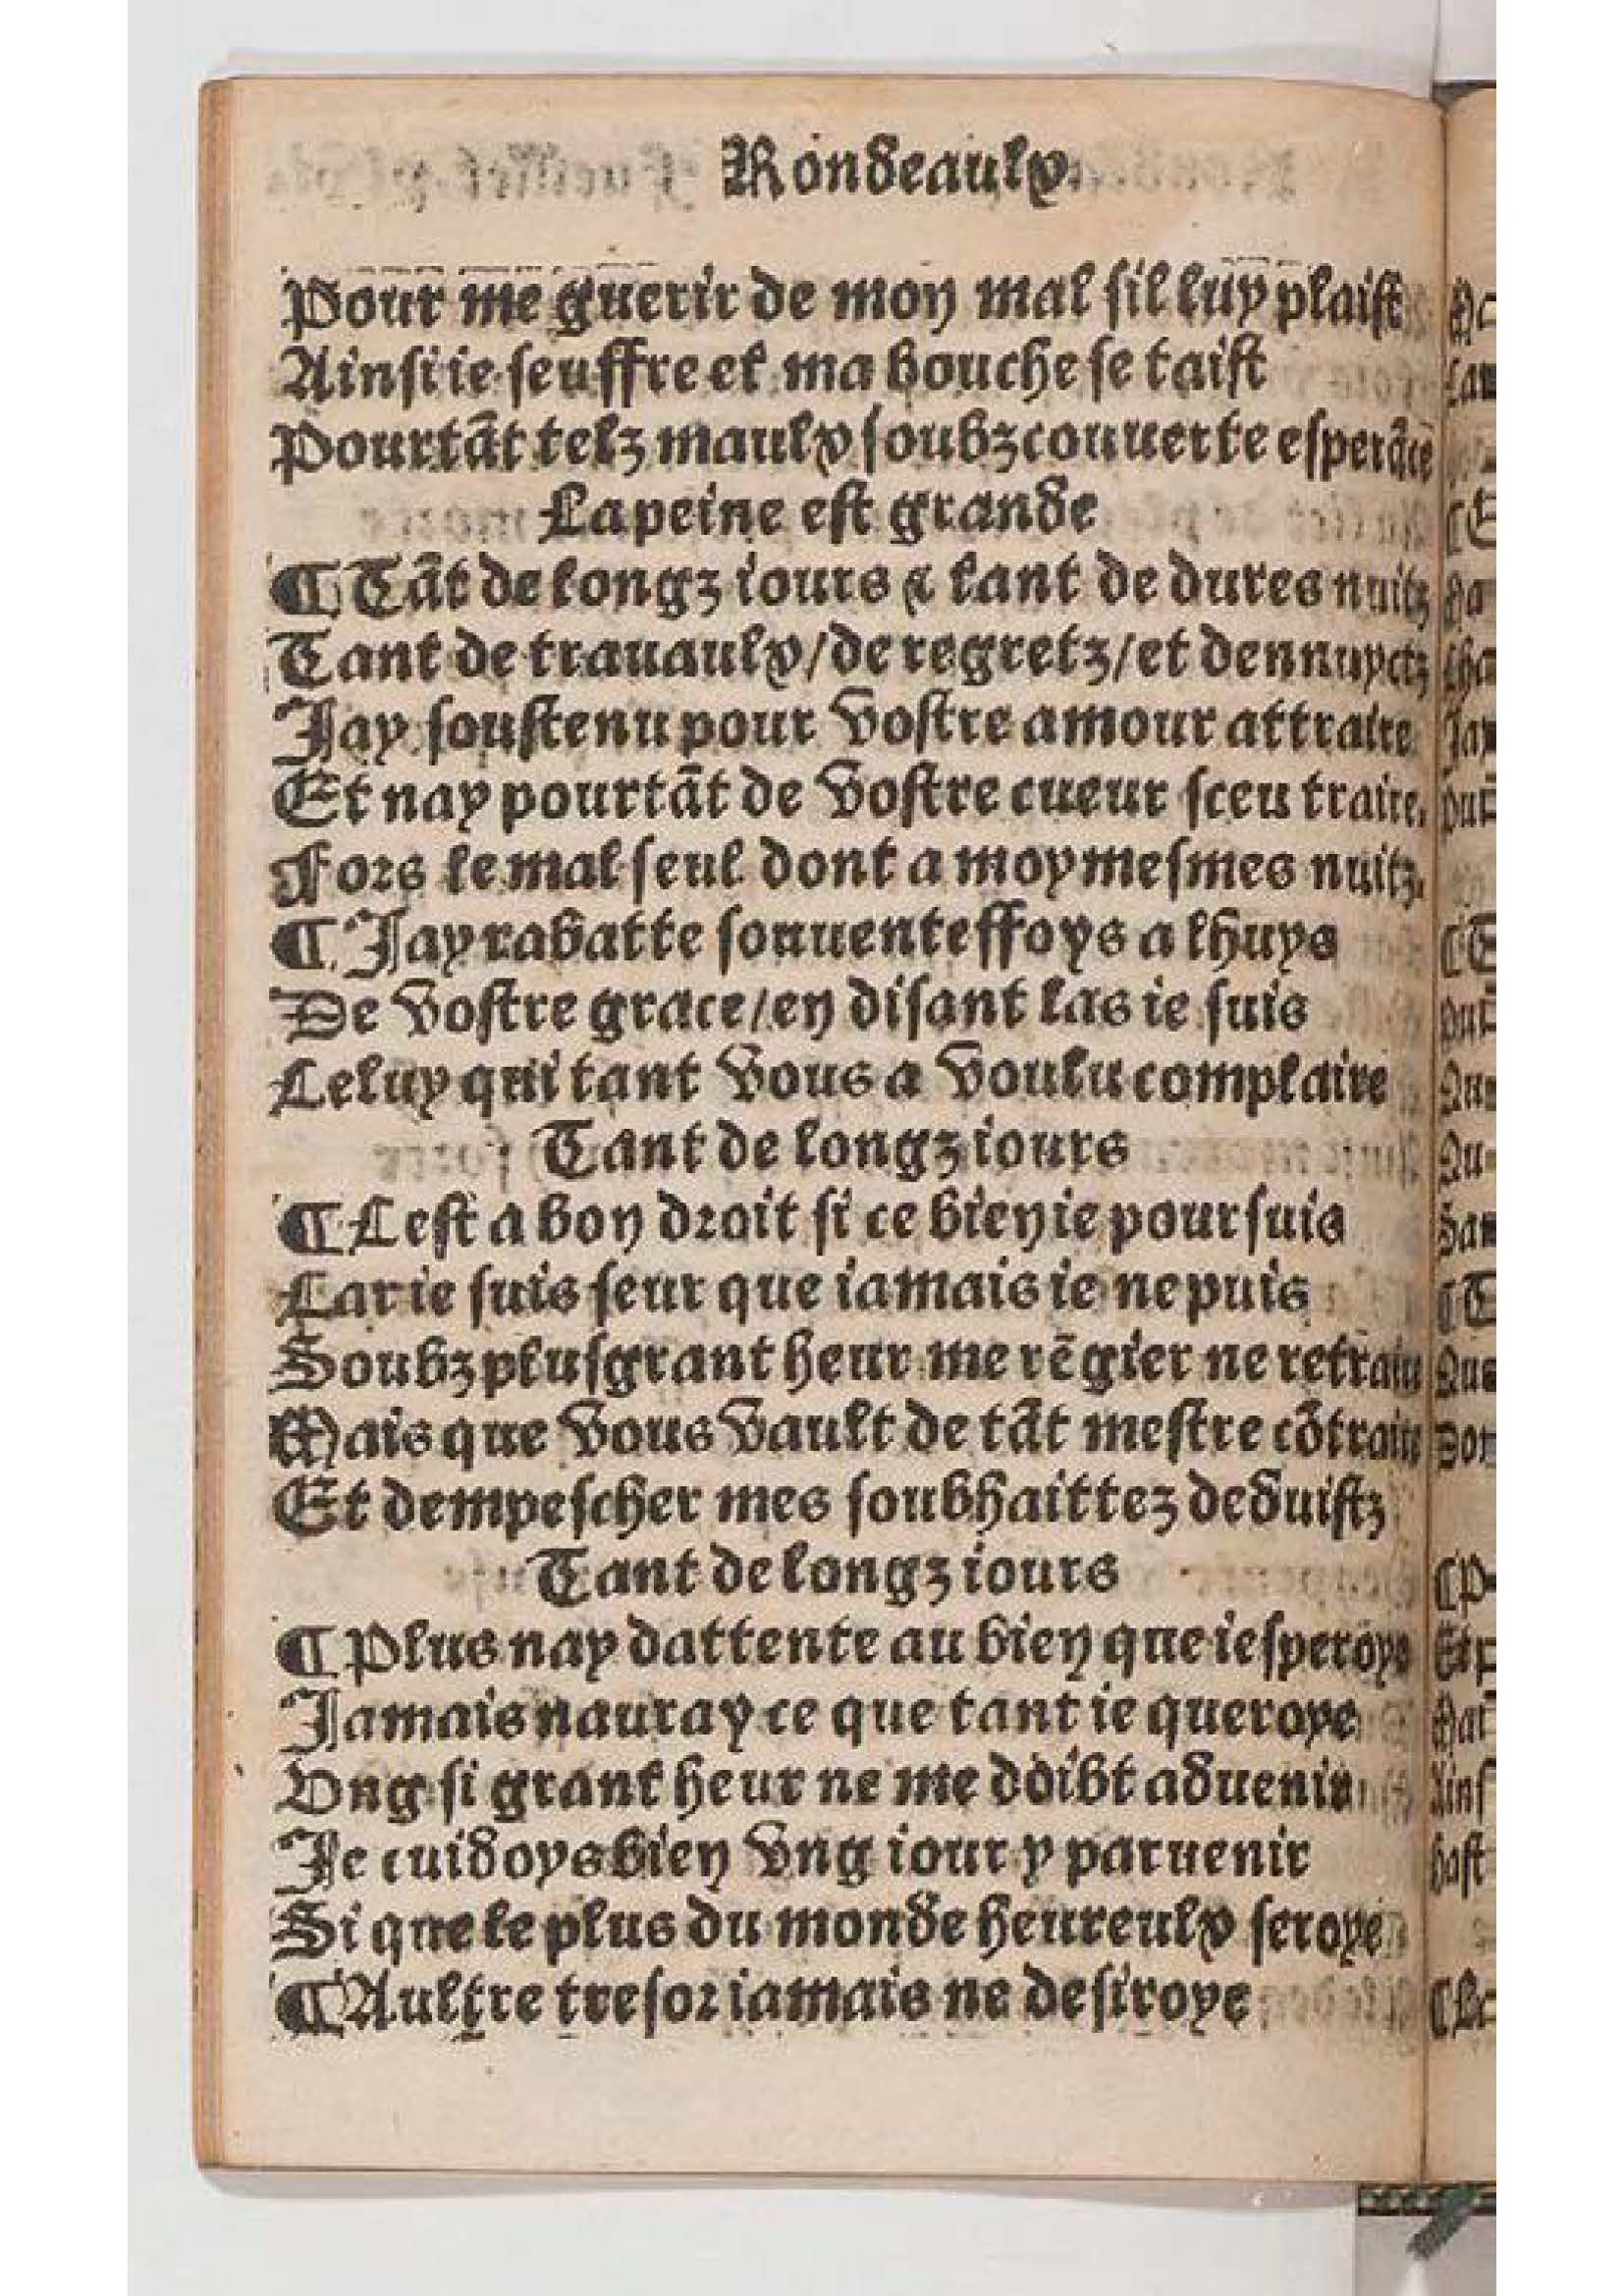 Rondeaulx.
Pour me guerir de mon mal sil luy plaist
Ainsi ie seuffre et ma bouche se taist
Pourtãt telz maulx soubz couuerte esperãce
La peine est grande
¶ Tãt de longz iours & tant de dures nuitz
Tant de trauaulx/de regretz/et dennuyctz
Jay soustenu pour vostre amour attraire
Et nay pourtãt de vostre cueur sceu traire.
Fors le mal seul dont a moymesmes nuitz.
¶ Jay rabatte souuenteffoys a lhuys
De vostre grace/en disant las ie suis
Celuy qui tant vous a voulu complaire
Tant de longz iours
¶ Cest a bon droit si ce bien ie poursuis
Car ie suis seur que iamais ie ne puis
Soubz plusgrant heur me rẽgier ne retraire
Mais que vous vault de tãt mestre cõtraire
Et dempescher mes soubhaittez deduistz
Tant de longz iours
¶ Plus nay dattente au bien que iesperoye
Jamais nauray ce que tant ie queroye
Ung si grant heur ne me doibt aduenir
Je cuidoys bien vng iour y paruenir
Si que le plus du monde heureulx seroye
¶ Aultre tresor iamais ne desiroye